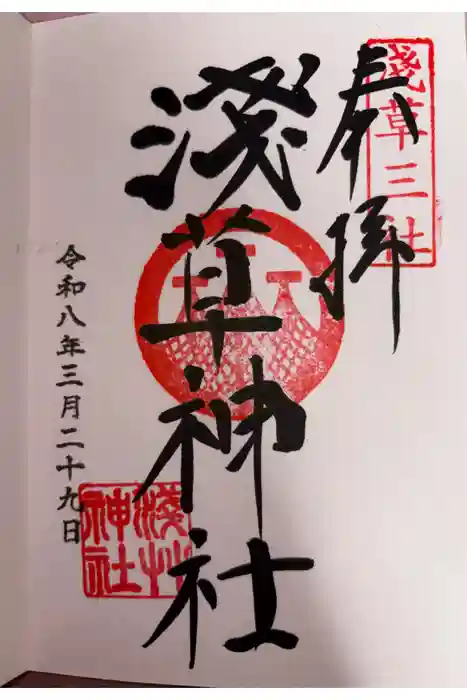 奉拝
淺草三社
淺草神社
令和八年三月二十九日
淺艸
神社